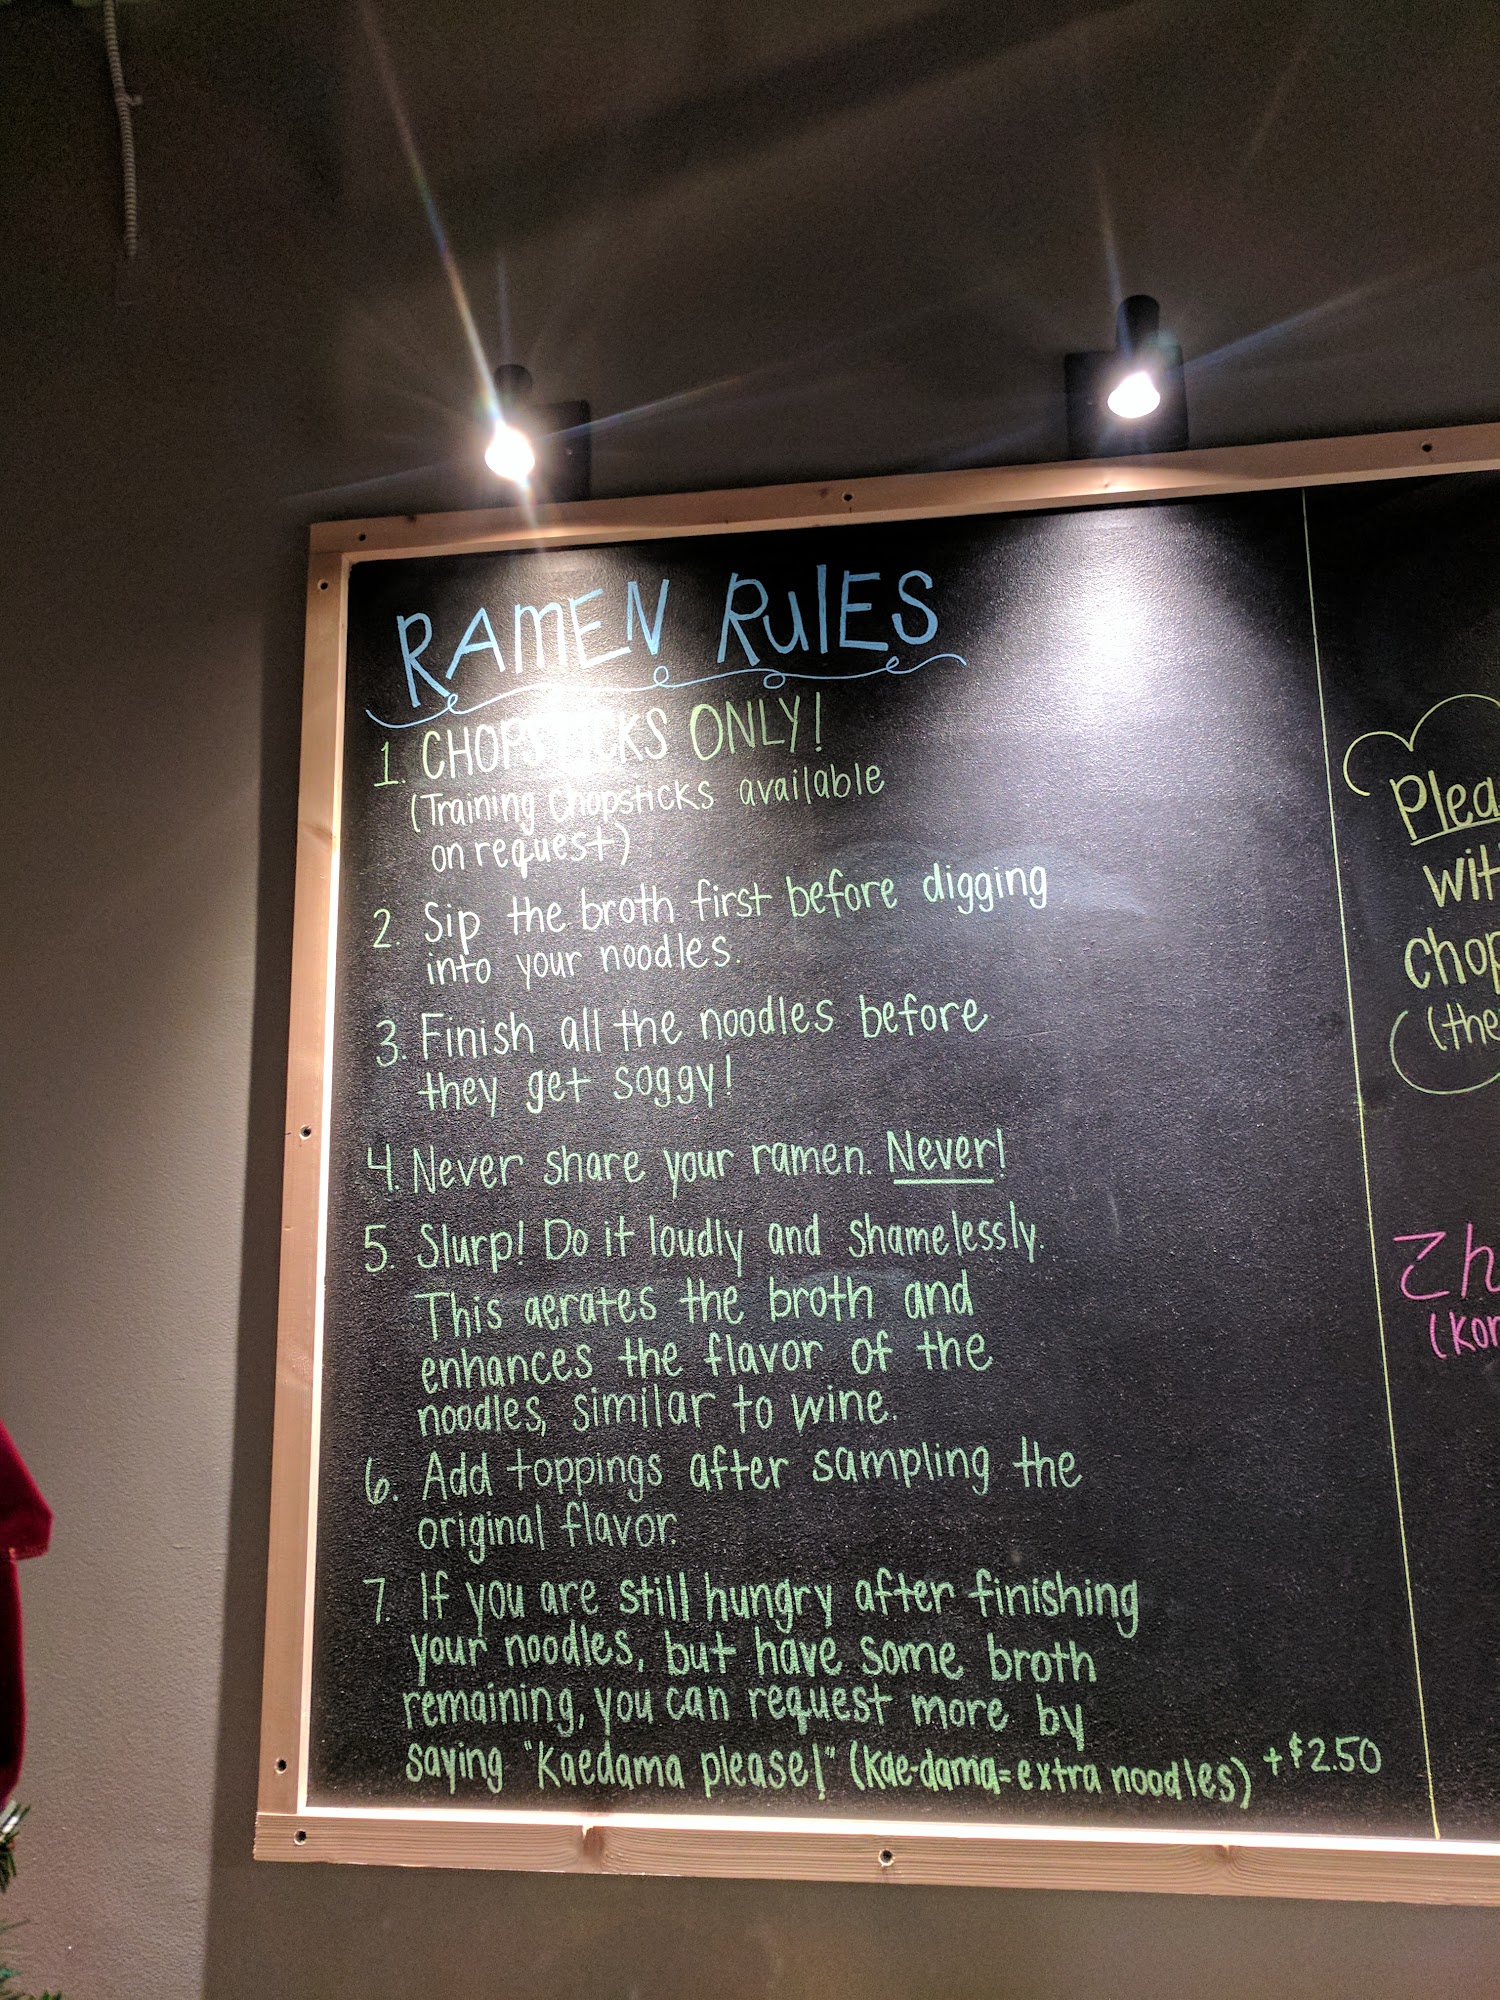 RAMEN RULES
1. CHOPSTICKS ONLY!
(Training chopsticks available
on request)
2. Sip the broth first before digging
into your noodles.
3. Finish all the noodles before
they get soggy!
4. Never share your ramen. Never!
5. Slurp! Do it loudly and shamelessly.
This aerates the broth and
enhances the flavor of the
noodles, similar to wine.
6. Add toppings after sampling the
original flavor.
7. If you are still hungry after finishing
your noodles, but have some broth
remaining, you can request more by
saying "Kaedama please!" (Kae-dama=extra noodles) +$2.50
(the